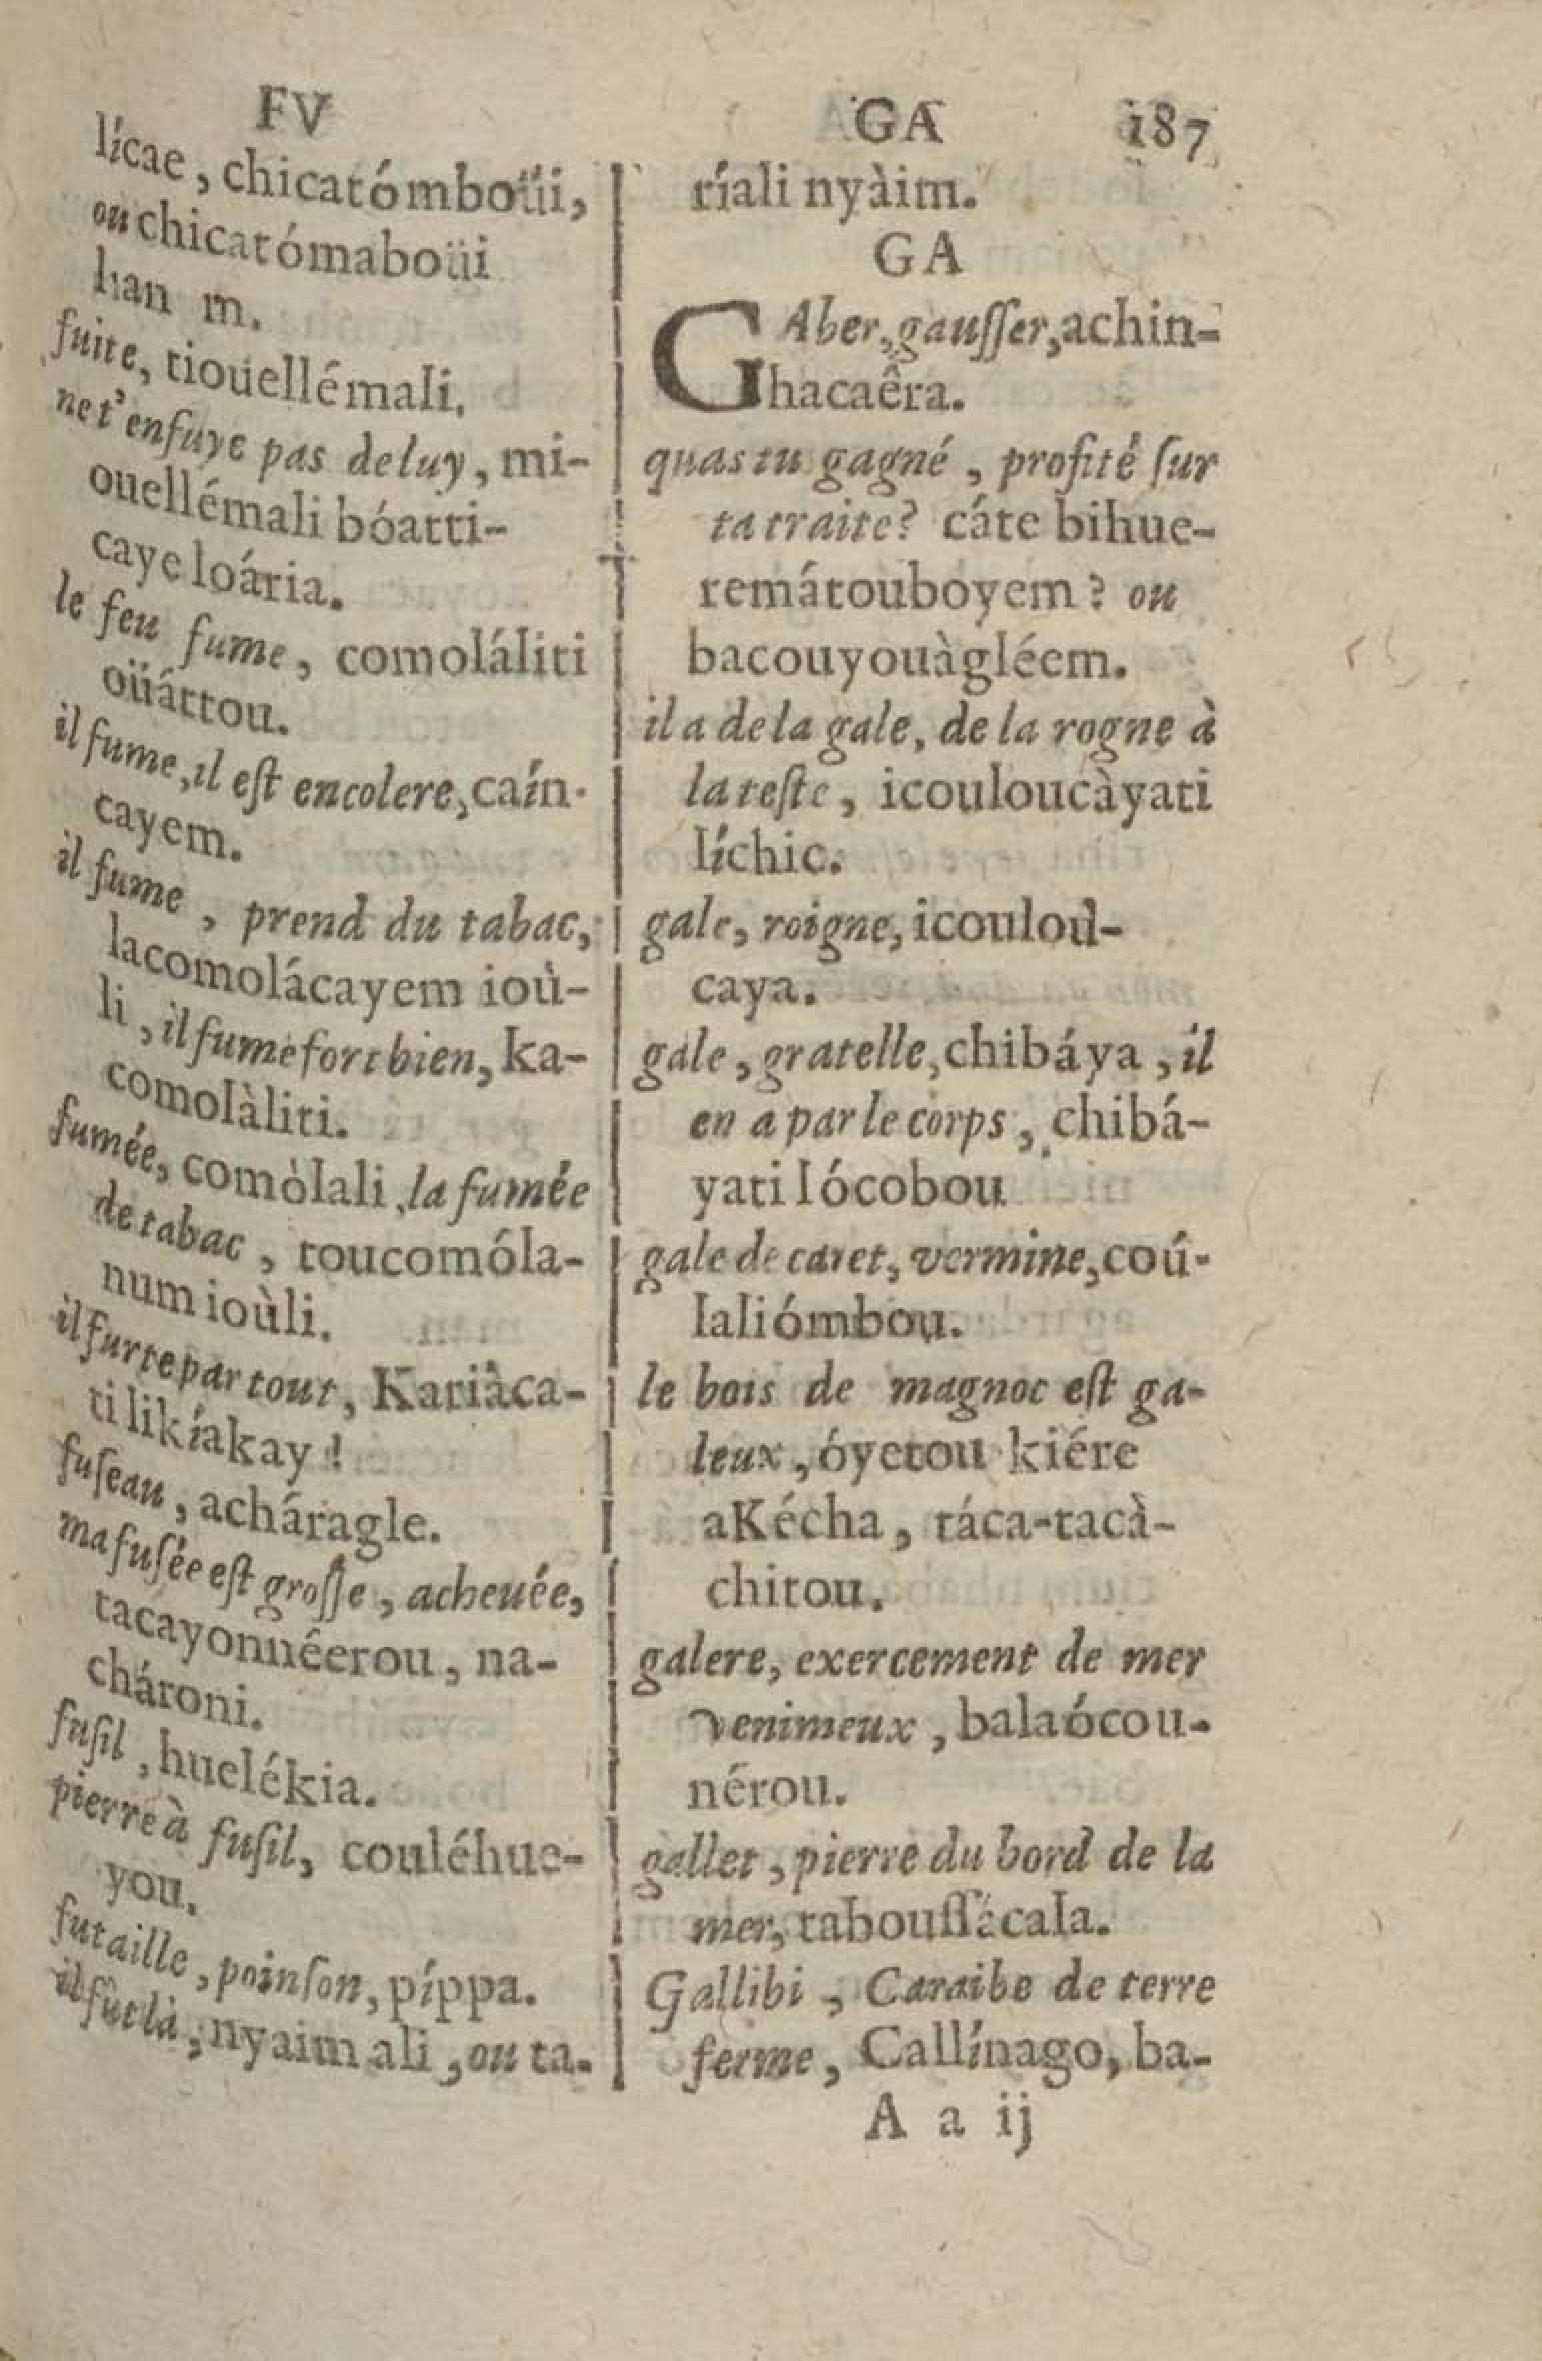 FV
lícae, chicatómboüi,
ou chicatómaboüi
han m.
fuite, tiouellémali.
ne t'enfuye pas de luy, mi-
ouellémali bóatti-
caye loária.
le feu fume, comoláliti
oüáttou.
il fume, il eſt encolere, caín-
cayem.
il fume, prend du tabac,
lacomolácayem ioù-
li, il fume fort bien, ka-
comolàliti.
fumée, comòlali, la fumée
de tabac, toucomóla-
num ioùli.
il furte par tout, Kariàca-
ti likíakay !
fuſeau, acháragle.
ma fuſée eſt groſſe, acheuée,
tacayonnéerou, na-
chároni.
fuſil, huelékia.
pierre à fuſil, couléhue-
you.
futaille, poinſon, píppa.
il fût là, nyaim ali, ou ta-
GA 187
ríali nyàim.
GA
GAber, gauſſer, achin-
hacaêra.
quas tu gagné, profité ſur
ta traite? cáte bihue-
remátouboyem? ou
bacouyouàgléem.
il a de la gale, de la rogne à
la teſte, icouloucàyati
líchic.
gale, roigne, icouloú-
caya.
gale, gratelle, chibáya, il
en a par le corps, chibá-
yati lócobou
gale de caret, vermine, coú-
laliómbou.
le bois de magnoc eſt ga-
leux, óyetou kiére
aKécha, táca-tacà-
chitou.
galere, exercement de mer
venimeux, balaócou-
nérou.
gallet, pierre du bord de la
mer, tabouſſácala.
Gallibi, Caraibe de terre
ferme, Callínago, ba-
A a ij